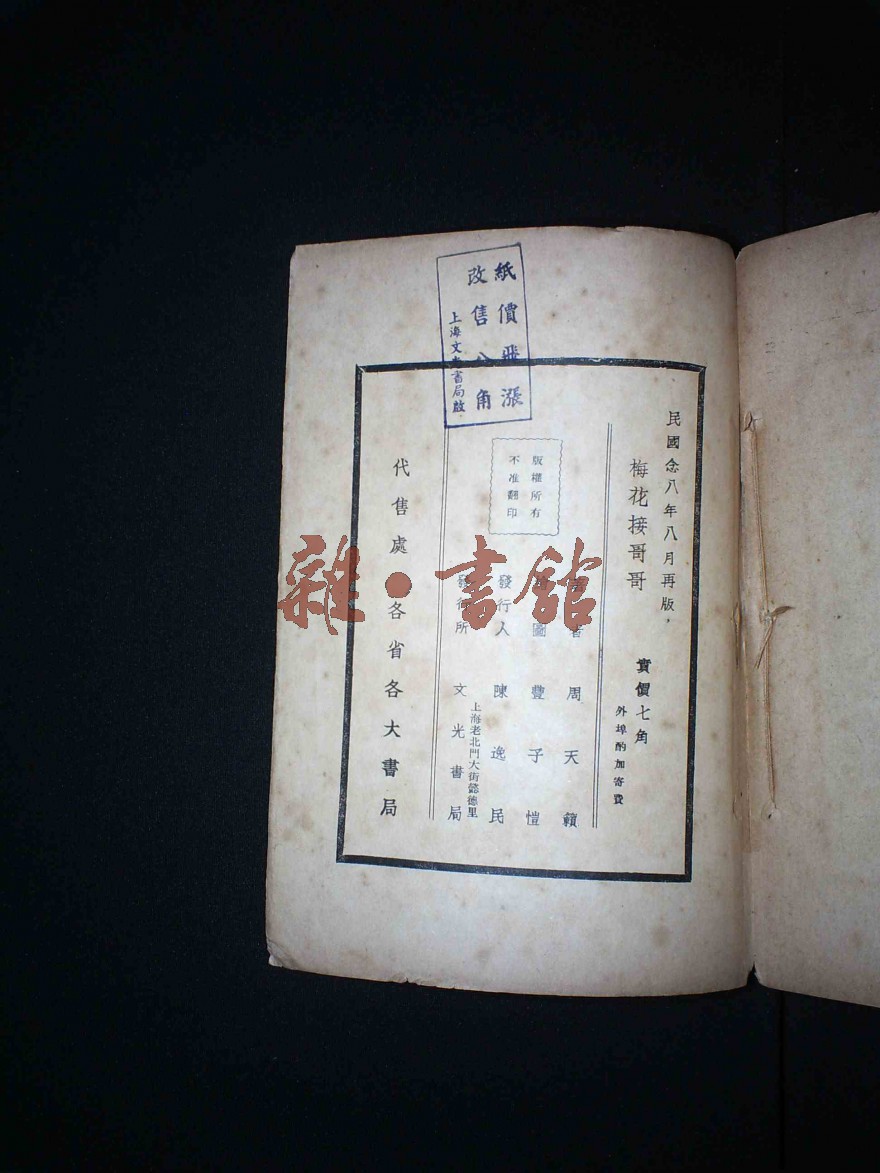 紙價飛漲
改售八角
上海文光書局啟
民國念八年八月再版，
梅花接哥哥
實價七角
外埠酌加寄費
版權所有
不准翻印
著者 周天籟
繪圖 豐子愷
發行人 陳逸民
發行所 文光書局
上海老北門大街懿德里
代售處 各省各大書局
雜•書館